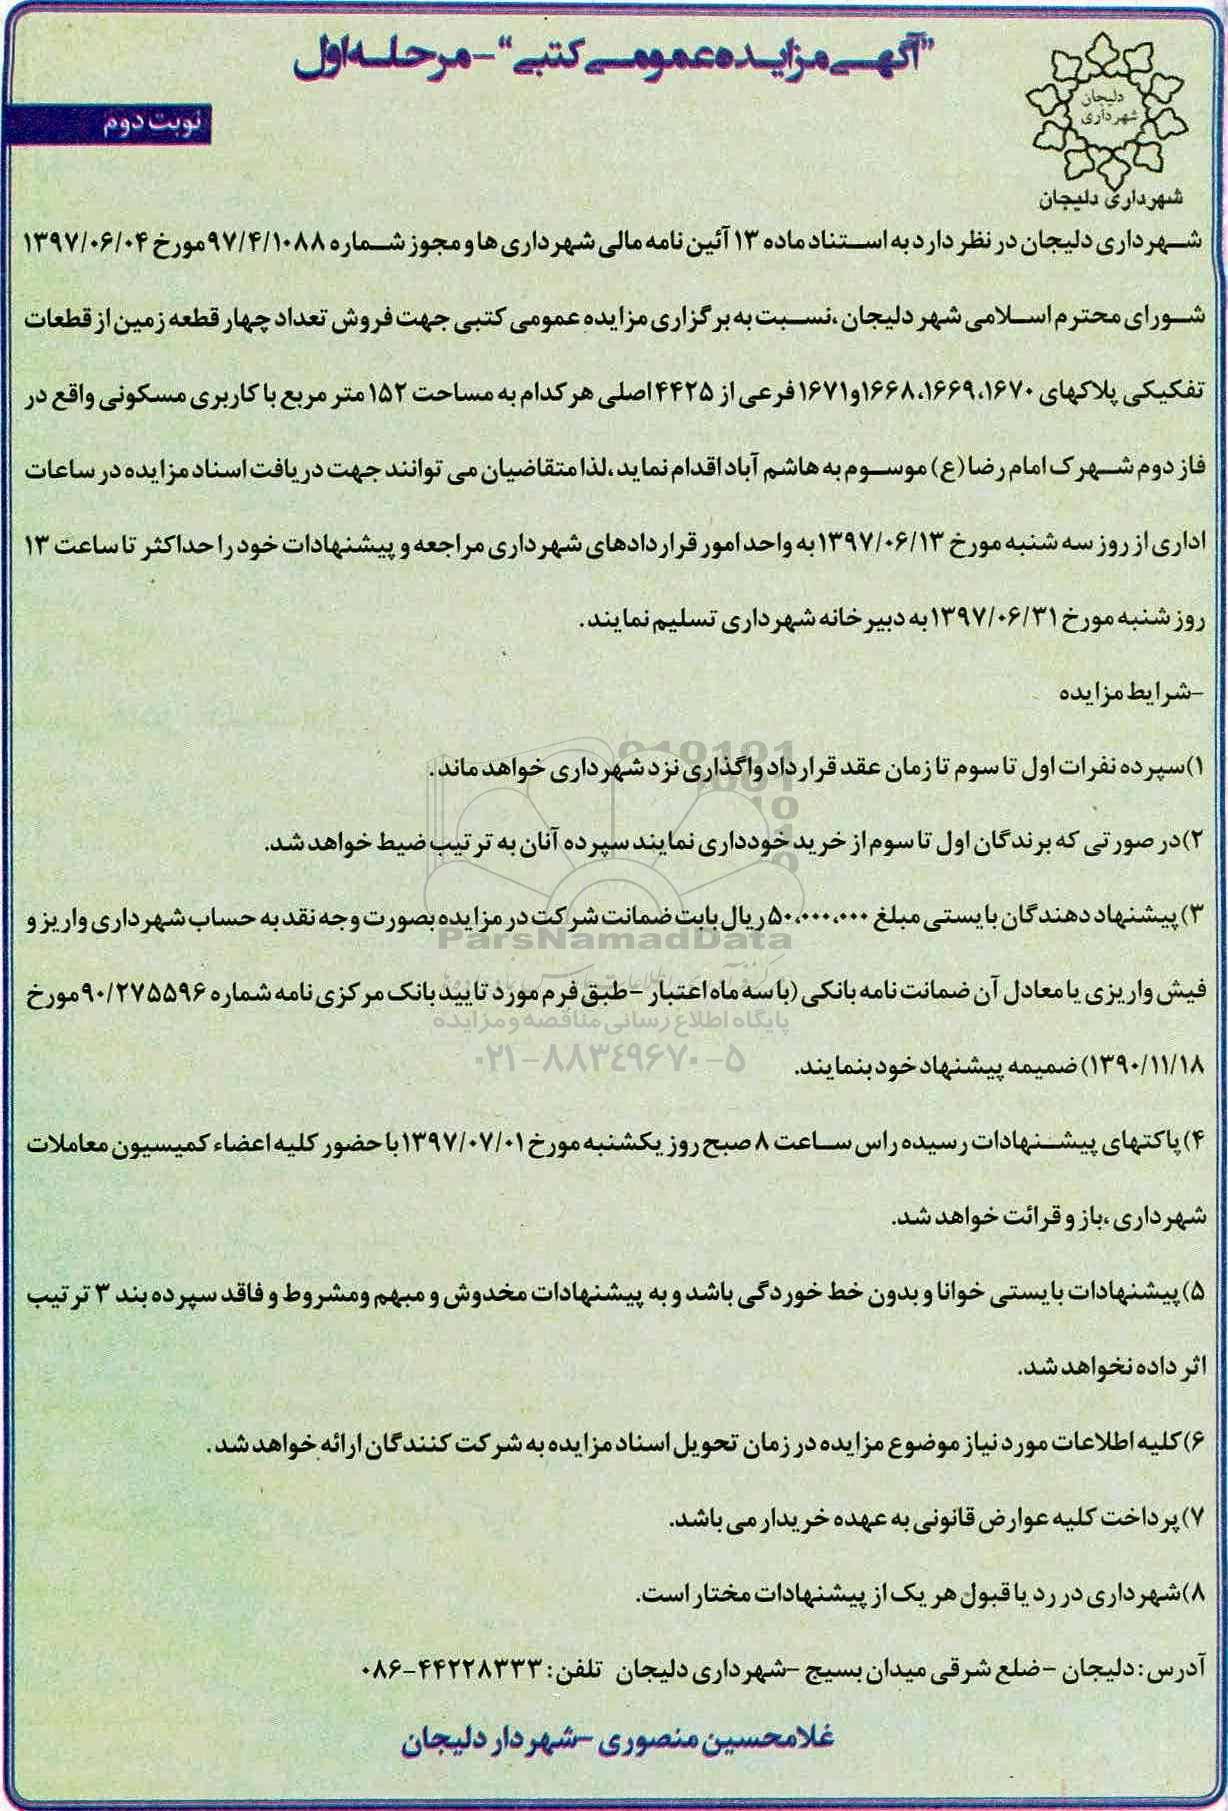 "آگهی مزایده عمومی کتبی" - مرحله اول
دلیجان
شهرداری
نوبت دوم
شهرداری دلیجان
شهرداری دلیجان در نظر دارد به استناد ماده ۱۳ آئین نامه مالی شهرداری ها و مجوز شماره ۹۷/۴/۱۰۸۸ مورخ ۱۳۹۷/۰۶/۰۴
شورای محترم اسلامی شهر دلیجان ،نسبت به برگزاری مزایده عمومی کتبی جهت فروش تعداد چهار قطعه زمین از قطعات
تفکیکی پلاکهای ۱۶۷۰،۱۶۶۹،۱۶۶۸و۱۶۷۱ فرعی از ۴۴۲۵ اصلی هر کدام به مساحت ۱۵۲ متر مربع با کاربری مسکونی واقع در
فاز دوم شهرک امام رضا (ع) موسوم به هاشم آباد اقدام نماید ،لذا متقاضیان می توانند جهت دریافت اسناد مزایده در ساعات
اداری از روز سه شنبه مورخ ۱۳۹۷/۰۶/۱۳ به واحد امور قراردادهای شهرداری مراجعه و پیشنهادات خود را حداکثر تا ساعت ۱۳
روز شنبه مورخ ۱۳۹۷/۰۶/۳۱ به دبیرخانه شهرداری تسلیم نمایند.
-شرایط مزایده
۱)سپرده نفرات اول تا سوم تا زمان عقد قرارداد واگذاری نزد شهرداری خواهد ماند.
۲)در صورتی که برندگان اول تا سوم از خرید خودداری نمایند سپرده آنان به ترتیب ضبط خواهد شد.
۳) پیشنهاد دهندگان بایستی مبلغ ۵۰،۰۰۰،۰۰۰ ریال بابت ضمانت شرکت در مزایده بصورت وجه نقد به حساب شهرداری واریز و
ParsNamadData
فیش واریزی یا معادل آن ضمانت نامه بانکی (با سه ماه اعتبار -طبق فرم مورد تایید بانک مرکزی نامه شماره ۹۰/۲۷۵۵۹۶ مورخ
پایگاه اطلاع رسانی مناقصه و مزایده
۱۳۹۰/۱۱/۱۸) ضمیمه پیشنهاد خود بنمایند.
۰۲۱-۸۸۳۴۹۶۷۰-۵
۴) پاکتهای پیشنهادات رسیده راس ساعت ۸ صبح روز یکشنبه مورخ ۱۳۹۷/۰۷/۰۱ با حضور کلیه اعضاء کمیسیون معاملات
شهرداری ،باز و قرائت خواهد شد.
۵) پیشنهادات بایستی خوانا و بدون خط خوردگی باشد و به پیشنهادات مخدوش و مبهم ومشروط و فاقد سپرده بند ۳ ترتیب
اثر داده نخواهد شد.
۶) کلیه اطلاعات مورد نیاز موضوع مزایده در زمان تحویل اسناد مزایده به شرکت کنندگان ارائه خواهد شد.
۷) پرداخت کلیه عوارض قانونی به عهده خریدار می باشد.
۸)شهرداری در رد یا قبول هر یک از پیشنهادات مختار است.
آدرس: دلیجان -ضلع شرقی میدان بسیج -شهرداری دلیجان تلفن: ۴۴۲۲۸۳۳۳-۰۸۶
غلامحسین منصوری -شهردار دلیجان